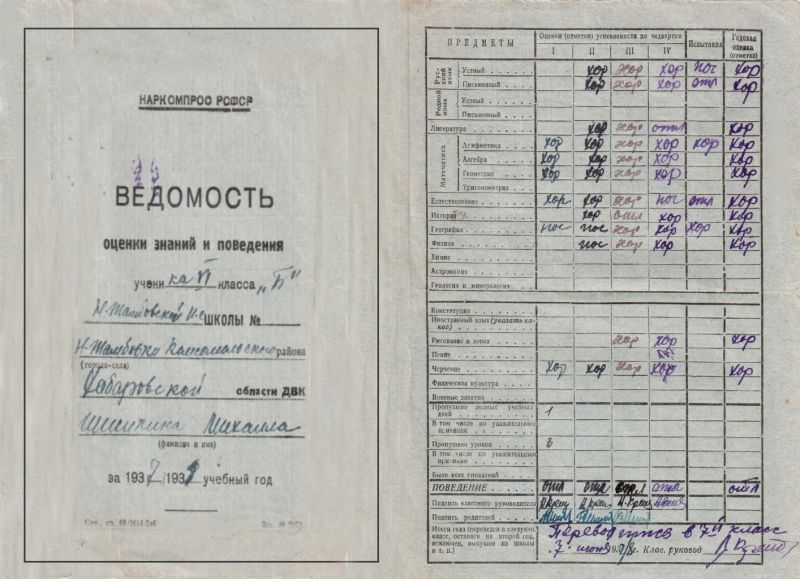 НАРКОМПРОС РСФСР
ВЕДОМОСТЬ
оценки знаний и поведения
учени ка VI класса „Б"
ШКОЛЫ №
района
(города-села)
Хабаровской области ДВК
Шишкина Михаила
(фамилия и имя)
за 1937/1938 учебный год
ПРЕДМЕТЫ Оценки (отметки) успеваемости по четвертям Испытания Годовая оценка (отметка)
I II III IV
Русский язык
Устный хор хор хор пос хор
Письменный хор хор хор отл хор
Родной язык
Устный
Письменный
Литература хор хор отл хор
Математика
Арифметика хор хор хор хор хор хор
Алгебра хор хор хор хор хор
Геометрия хор хор хор хор хор
Тригонометрия
Естествознание хор хор хор пос отл хор
История хор отл хор хор
География пос пос хор хор хор хор
Физика пос хор хор хор
Химия
Астрономия
Геология и минералогия
Конституция
Иностранный язык (указать какой)
Рисование и лепка хор хор хор
Пение
Черчение хор хор хор хор хор
Физическая культура
Военные занятия
Пропущено полных учебных дней 1
В том числе по уважительным причинам
Пропущено уроков 3
В том числе по уважительным причинам
Было всех опозданий
ПОВЕДЕНИЕ отл отл отл отл
Подпись классного руководителя
Подпись родителей
Итоги года (переведен в следующий класс, оставлен на второй год, исключен, выпущен из школы и т. п.)
Переводится в 7й класс
7 июня 1938 г. Клас. руковод